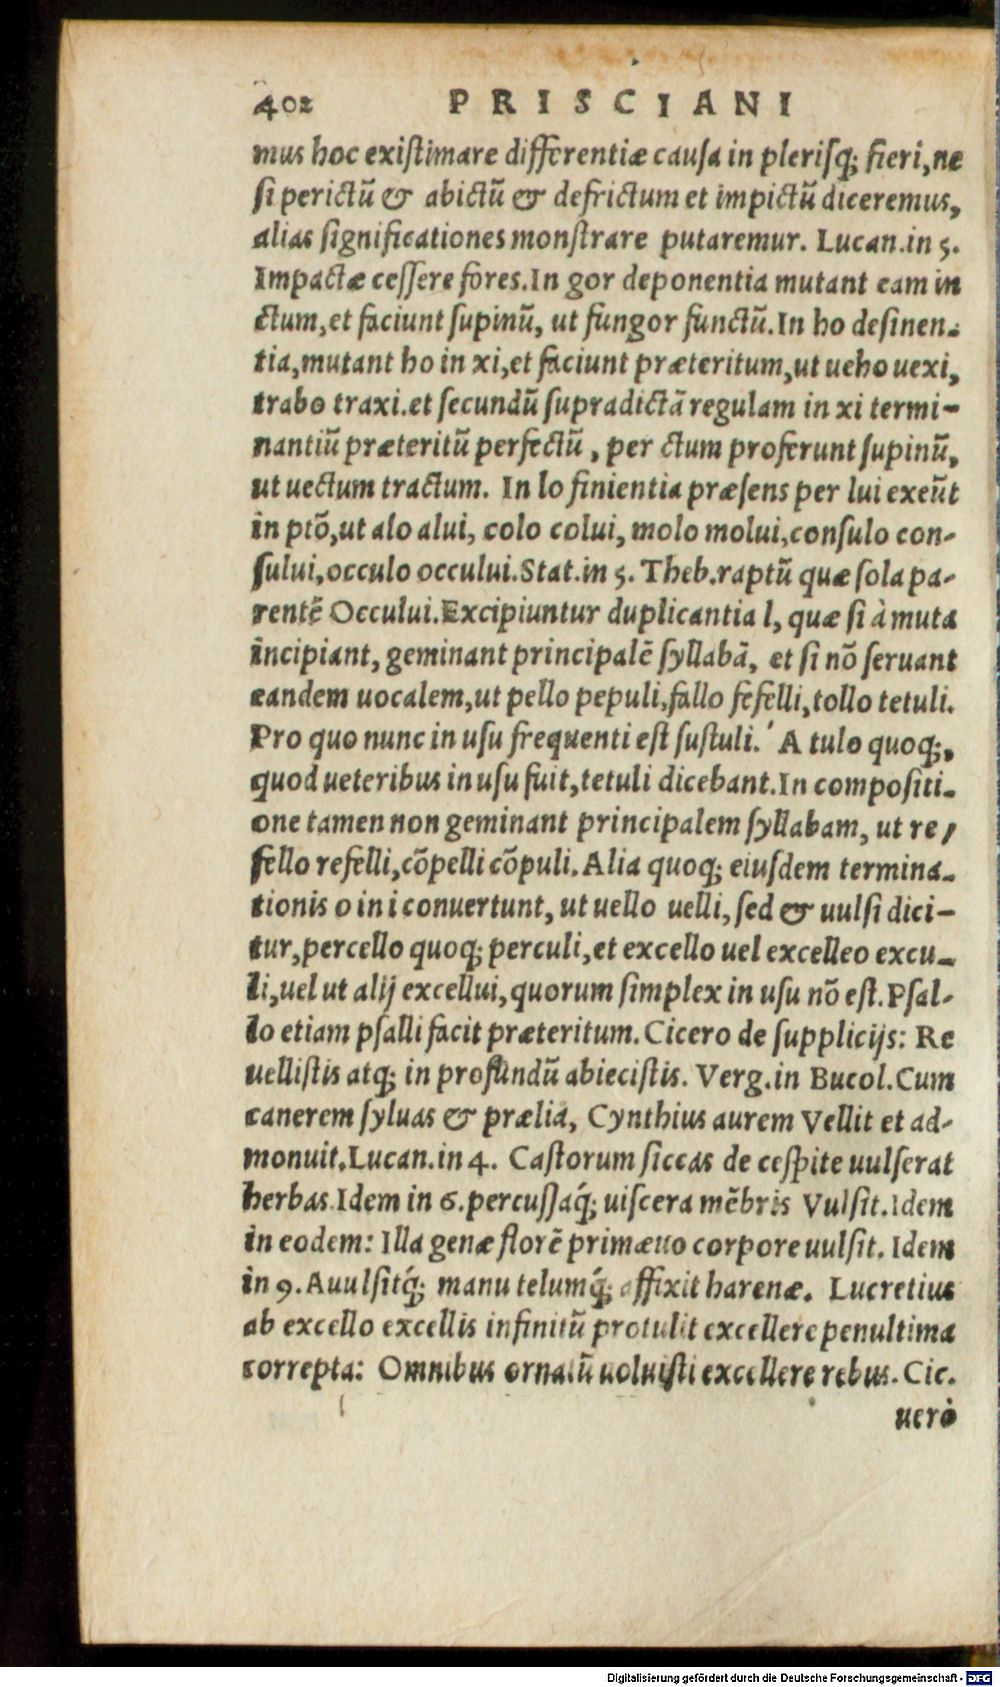 402 PRISCIANI
mus hoc exiſtimare differentiæ cauſa in pleriſq; fieri, ne
ſi perictū & abictū & defrictum et impictū diceremus,
alias ſignificationes monſtrare putaremur. Lucan.in 5.
Impactæ ceſſere fores.In gor deponentia mutant eam in
ctum,et faciunt ſupinū, ut fungor functū.In ho deſinen-
tia,mutant ho in xi,et faciunt præteritum,ut ueho uexi,
traho traxi.et ſecundū ſupradictā regulam in xi termi-
nantiū præteritū perfectū, per ctum proferunt ſupinū,
ut uectum tractum. In lo finientia præſens per lui exeūt
in ptō,ut alo alui, colo colui, molo molui,conſulo con-
ſului,occulo occului.Stat.in 5. Theb.raptū quæ ſola pa-
rentē Occului.Excipiuntur duplicantia l, quæ ſi à muta
incipiant, geminant principalē ſyllabā, et ſi nō ſeruant
eandem uocalem,ut pello pepuli,fallo fefelli,tollo tetuli.
Pro quo nunc in uſu frequenti eſt ſuſtuli.' A tulo quoq;,
quod ueteribus in uſu fuit,tetuli dicebant.In compoſiti-
one tamen non geminant principalem ſyllabam, ut re,
fello refelli,cōpelli cōpuli.Alia quoq; eiuſdem termina-
tionis o in i conuertunt, ut uello uelli, ſed & uulſi dici-
tur,percello quoq; perculi,et excello uel excelleo excu-
li,uel ut alij excellui,quorum ſimplex in uſu nō eſt.Pſal-
lo etiam pſalli facit præteritum.Cicero de ſupplicijs: Re
uelliſtis atq; in profundū abieciſtis. Verg.in Bucol.Cum
canerem ſyluas & prælia, Cynthius aurem Vellit et ad-
monuit.Lucan.in 4. Caſtorum ſiccas de ceſpite uulſerat
herbas.Idem in 6.percuſſaq́; uiſcera mēbris Vulſit.Idem
in eodem: Illa genæ florē primæuo corpore uulſit. Idem
in 9.Auulſitq́; manu telumq́; affixit harenæ. Lucretius
ab excello excellis infinitū protulit excellere penultima
correpta: Omnibus ornatū uoluiſti excellere rebus. Cic.
uerò
Digitalisierung gefördert durch die Deutsche Forschungsgemeinschaft - DFG